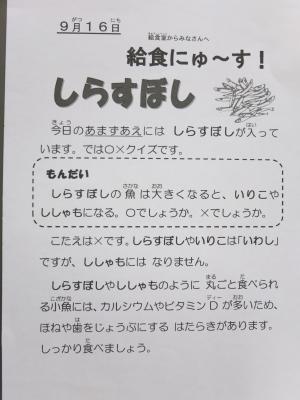 ９月１６日
給食室からみなさんへ
給食にゅ～す！
しらすぼし
今日のあまずあえには しらすぼしが入っています。では○×クイズです。
もんだい
しらすぼしの 魚 は大きくなると、いりこや
ししゃもになる。○でしょうか。×でしょうか。
こたえは×です。しらすぼしやいりこは「いわし」
ですが、ししゃもには なりません。
しらすぼしやししゃものように 丸ごと食べられ
る小魚には、カルシウムやビタミンＤが多いため、
ほねや歯をじょうぶにする はたらきがあります。
しっかり食べましょう。